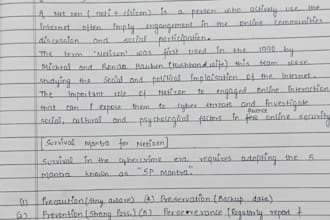 A Netizen ( net + citizen) is a person who actively use the
internet often imply engangement in the online communities
discussion and social participation.
The term "Netizen" was first used in the 1990 by
Micheal and Ronda Hauben (Husband wife) this team were
studying the Social and political implaication of the Internet.
The Important role of Netizen to engaged online interaction
that can expose them to cyber terrors and investigate
social, cultural and psychological factors in online security
[Survival Mantra for Netizen]
Survival in the cybercrime era requires adopting the 5
mantra known as "5P Mantra".
(1) Precaution (Stay aware) (4) Preservation (Backup data)
(2) Prevention (Strong Pass.) (5) Perserverance (Regularly report